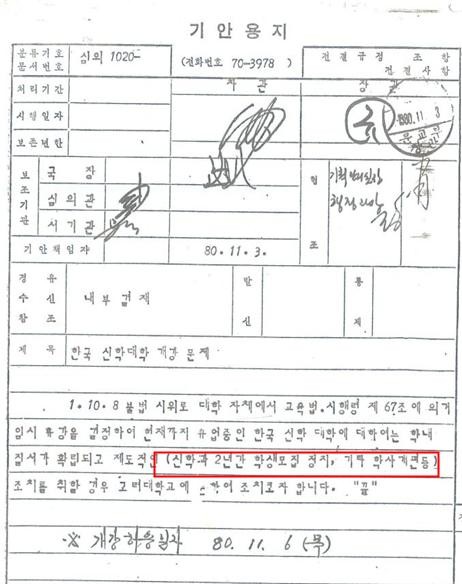 기 안 용 지
분류기호 문서번호 심의 1020-
(전화번호 70-3978)
전결규정 조 항
전결사항
처리기간
차 관
장 관
시행일자
보존년한
1980.11 3
보조기관
국 장
심의관
서기관
협조
기획관리실장
행정과장
기안책임자
80. 11. 3.
경유 수신 참조
내부결재
발신
통제
제 목
한국 신학대학 개강 문제
1. 10.8 불법 시위로 대학 자체에서 교육법.시행령 제 67조에 의거
임시 휴강을 결정하여 현재까지 휴업중인 한국 신학 대학에 대하여는 학내
질서가 확립되고 제도적인 (신학과 2년간 학생모집 정지, 기타 학사개편등)
조치를 취할 경우 하여 조치코자 합니다. "끝"
※ 개강허용일자 80. 11. 6 (목)